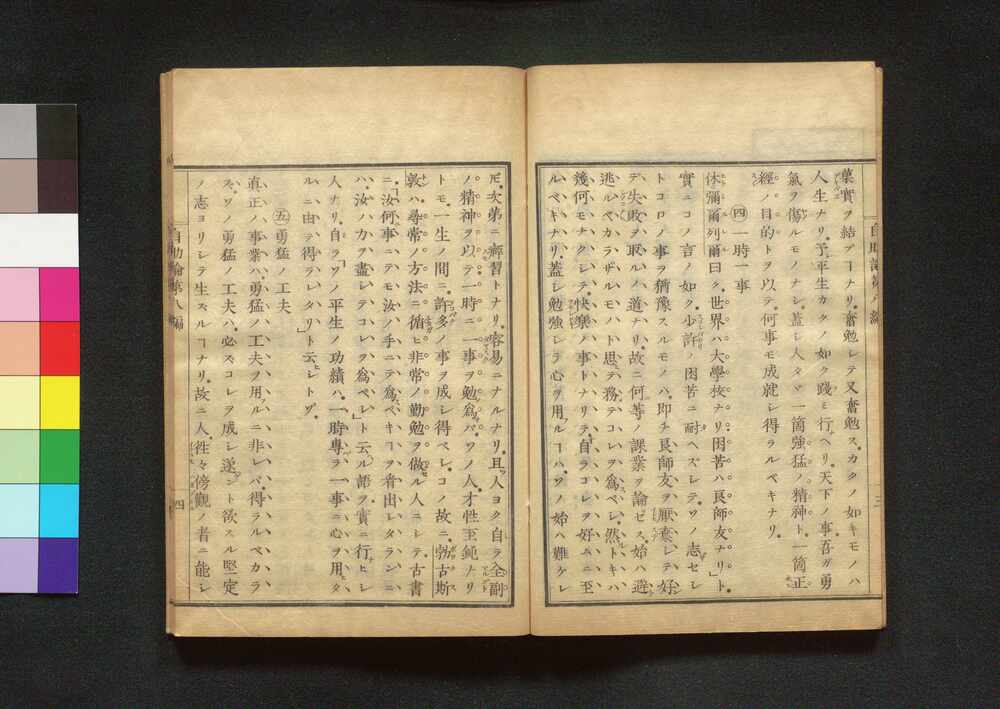 菓實ヲ結ブヿナリ。奮勉シテ又奮勉ス。カクノ如キモノハ
人生ナリ。予平生カクノ如ク踐ミ行ヘリ。天下ノ事吾ガ勇
氣ヲ傷ルモノナシ。蓋シ人タヾ一箇強猛ノ精神ト。一箇正
經ノ目的トヲ以テ。何事モ成就シ得ラルベキナリ。
㊃一時一事
休彌爾列爾曰ク。世界ハ大學校ナリ。困苦ハ良師友ナリ」ト。
實ニコノ言ノ如ク。少許ノ困苦ニ耐ヘズシテ。ソノ志セシ
トコロノ事ヲ猶豫スルモノハ。即チ良師友ヲ厭棄シテ好
デ失敗ヲ取ルノ道ナリ。故ニ何等ノ課業ヲ論ゼズ。始ハ遁
逃ルベカラザルモノト思テ。務テコレヲ為ベシ。然トキハ
幾何モナクシテ。快樂ノ事トナリテ。自ラコレヲ好ニ至
ルベキナリ。蓋シ勉強シテ心ヲ用ルヿハ。ソノ始ハ難ケレ
自助論第八編
三
𪜈。次第ニ習トナリ。容易ニナルナリ。且人ヨク自ラ全副
ノ精神ヲ以テ。一時ニ一事ヲ勉為バ。ソノ人才性至鈍ナリ
トモ一生ノ間ニ。許多ノ事ヲ成シ得ベシ。コノ故ニ。勃古斯
敦ハ。尋常ノ方法ニ循ヒ非常ノ勤勉ヲ做ル人ニシテ。古書
ニ「汝何事ニテモ汝ノ手ニテ為ベキヿヲ看出レタランニ
ハ。汝ノ力ヲ盡シテコレヲ為ベシ」ト云ル語ヲ實ニ行ヒシ
人ナリ。自ラ「ソノ平生ノ功績ハ。一時專ラ一事ニ心ヲ用タ
ルニ由テ得ラレタリ」ト云シトゾ。
㊄勇猛ノ工夫
眞正ノ事業ハ。勇猛ノ工夫ヲ用ルニ非レバ。得ラルベカラ
ズ。ソノ勇猛ノ工夫ハ。必ズコレヲ成シ遂ント欲スル堅定
ノ志ヨリシテ生ズルヿナリ。故ニ人。往々傍觀ノ者ニ能シ
自助論第八編
四